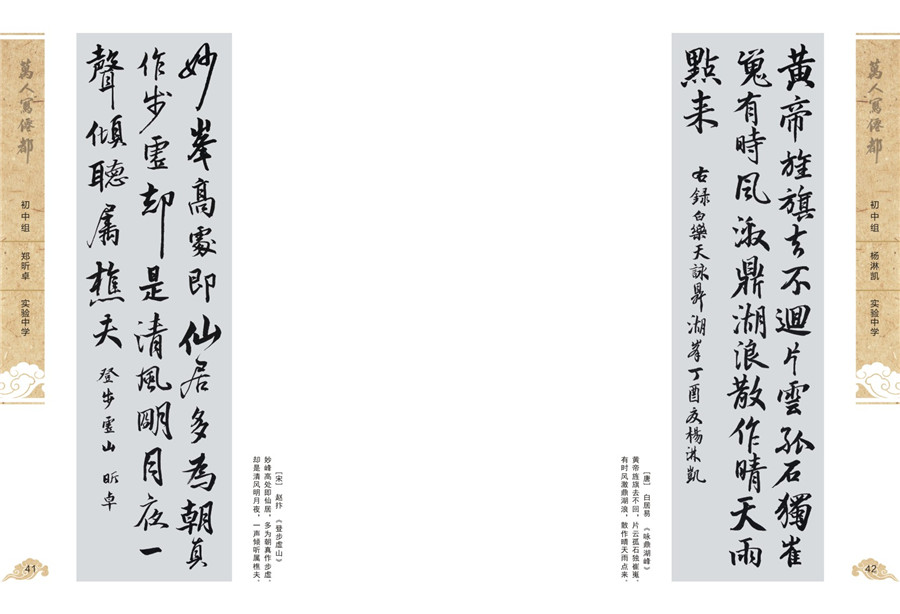 萬人寫僊都
初中组 郑昕卓 实验中学
41
妙峯高處即仙居多為朝真
作步虛却是清風眀月夜一
聲傾聽屬樵夫
登步虛山 昕卓
［宋］ 赵抃 《登步虚山》
妙峰高处即仙居，多为朝真作步虚，
却是清风明月夜，一声倾听属樵夫。
黃帝旌旗去不迴片雲孤石獨崔
嵬有時風激鼎湖浪散作晴天雨
點来
右録白樂天詠鼎湖峯丁酉夏楊淋凱
［唐］ 白居易 《咏鼎湖峰》
黄帝旌旗去不回，片云孤石独崔嵬，
有时风激鼎湖浪，散作晴天雨点来。
萬人寫僊都
初中组 杨淋凯 实验中学
42